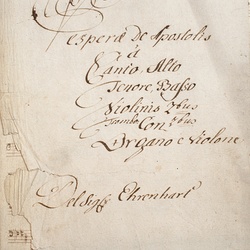 Vesperæ de Apostolis
à
Canto, Alto
Tenore, Basso
Violinis 2bus
Trombo Con 2bus
Organo e Violone
Del Sigre Ehrenhart